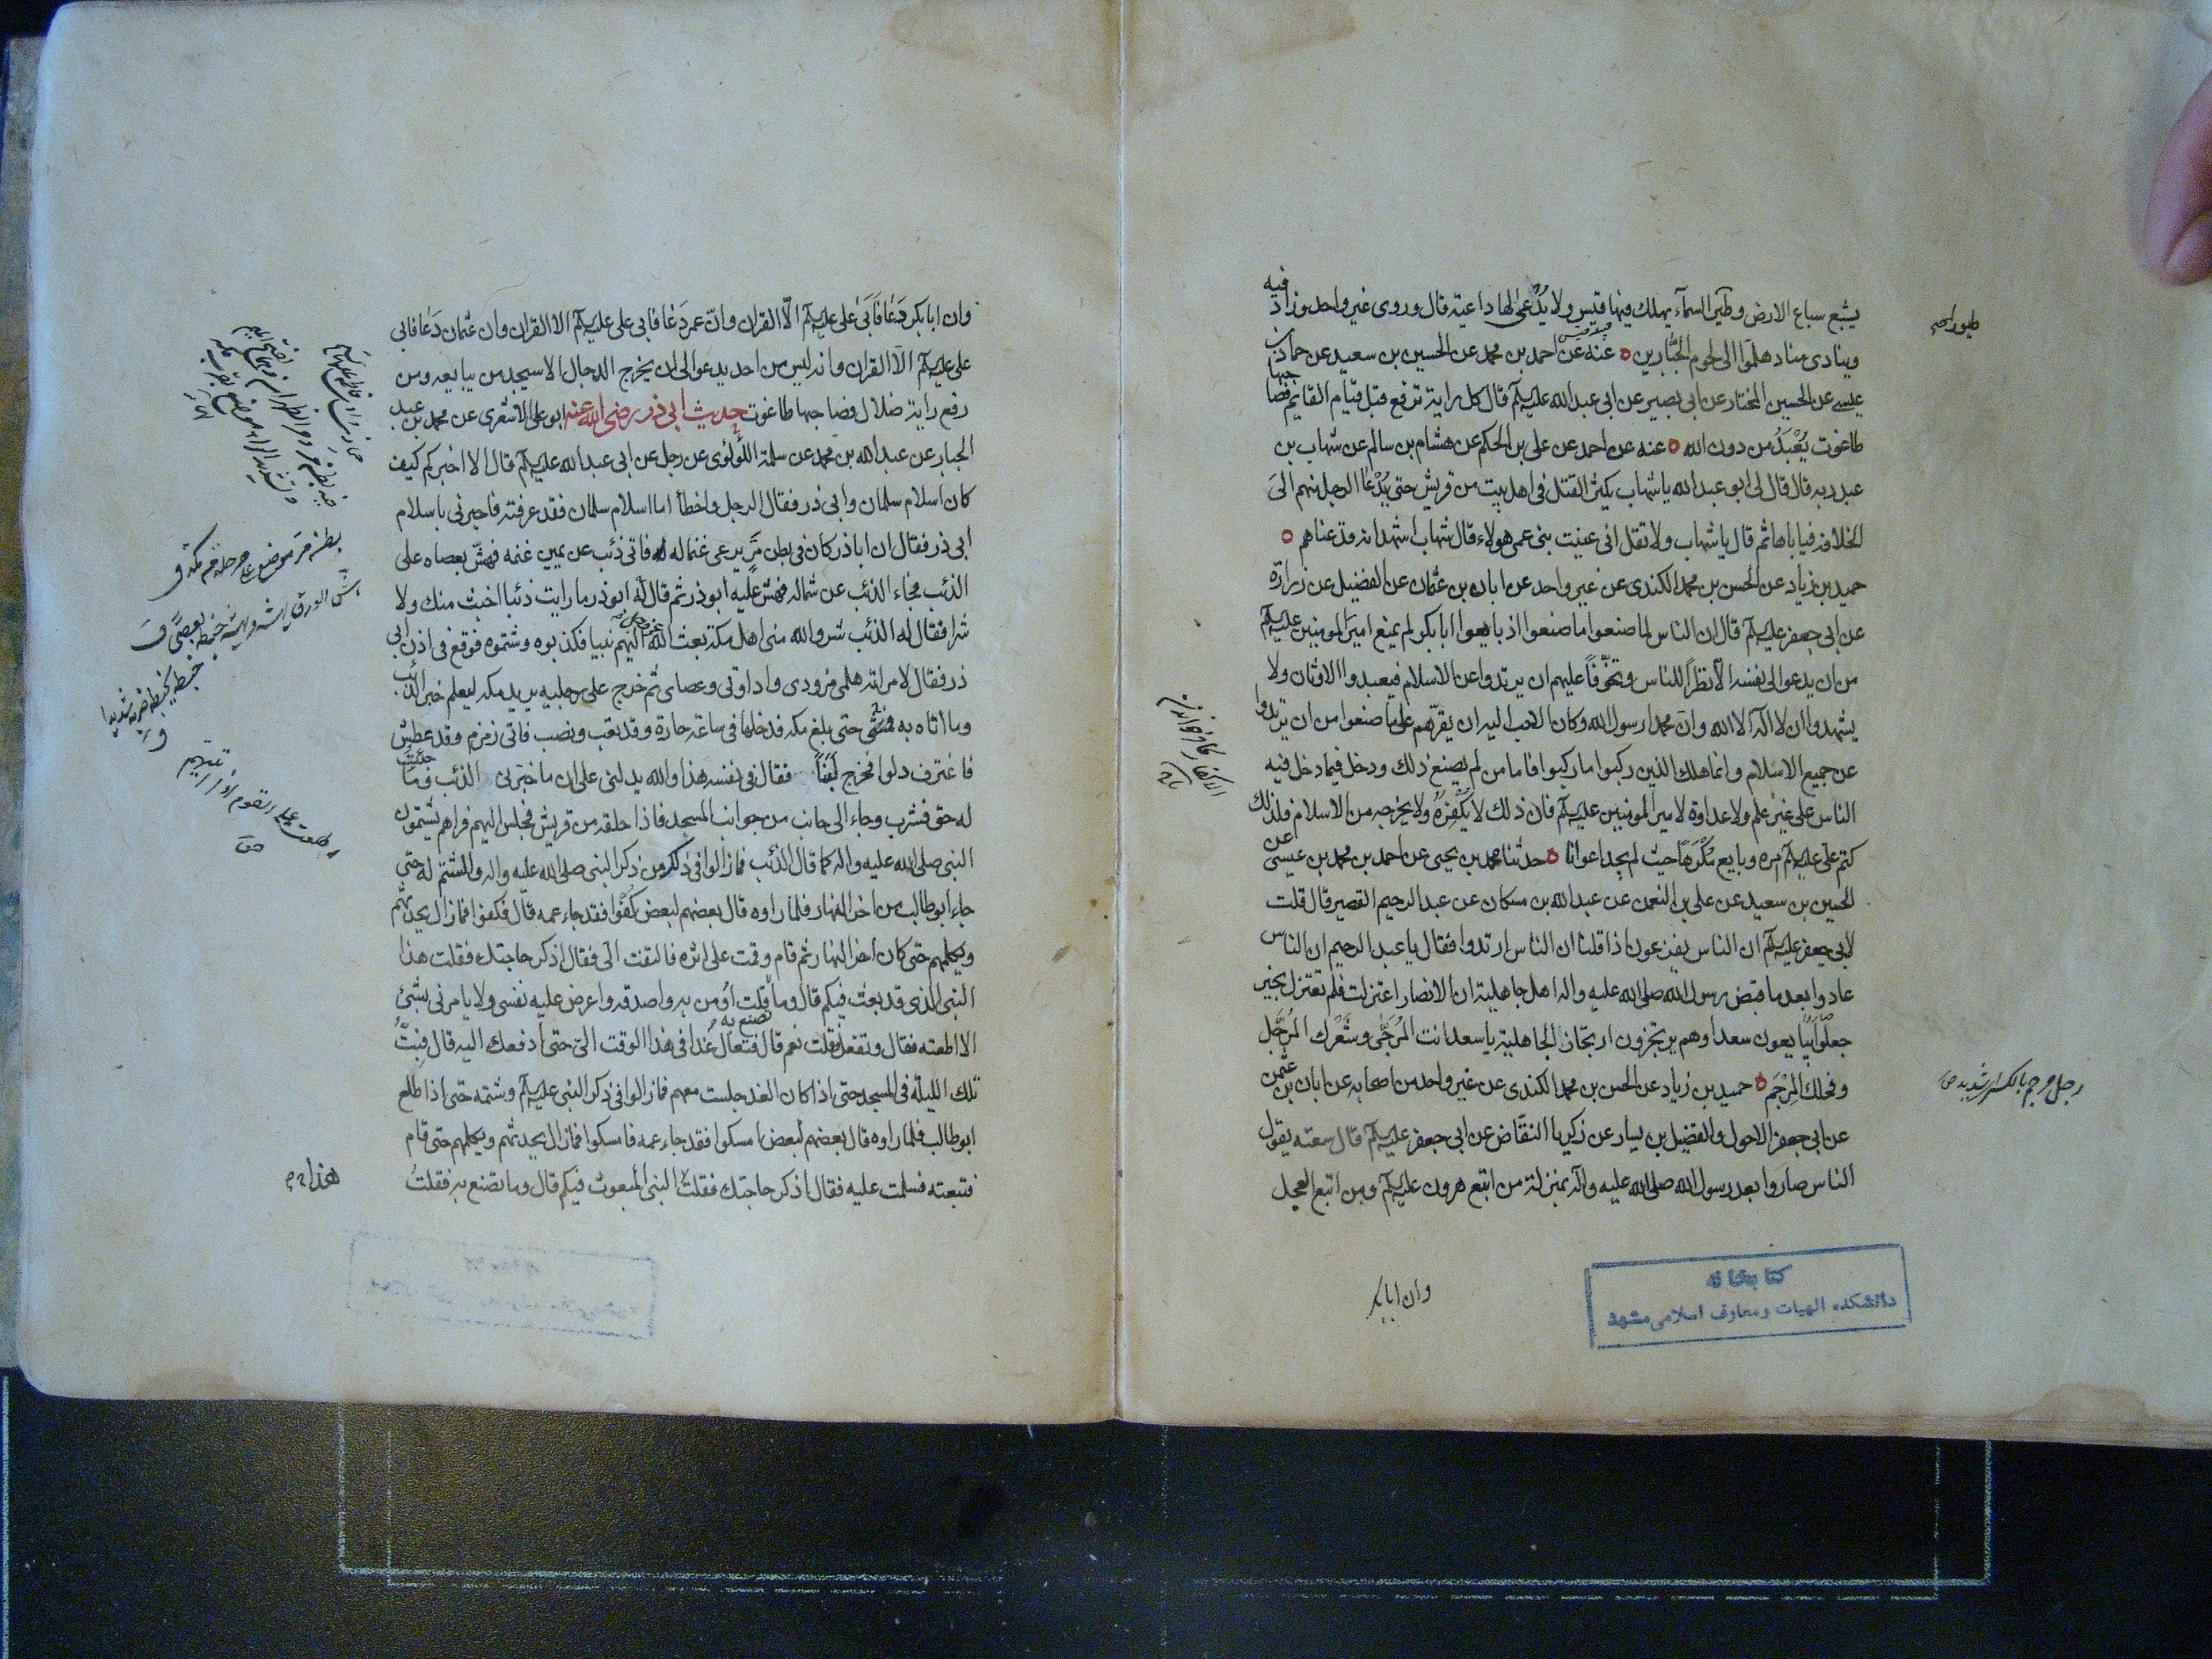 يشبع سباع الارض وطير السمآء يهلك فيها قيس ولا يُدْعىٰ لها داعية قال وروى غير واحد وزاد فيه
وينادى مناد هلمّوا الى لحوم الجبّارين عنه عن احمد بن محمد عن الحسين بن سعيد عن حماد بن
عيسى عن الحسين المختار عن ابى بصير عن ابى عبد الله عليه السلم قال كل راية ترفع قبل قيام القايم فصاحبها
طاغوت يُعْبَدُ من دون الله عنه عن احمد عن على بن الحكم عن هشام بن سالم عن شهاب بن
عبد ربه قال قال لى ابو عبد الله ياشهاب يكثر القتل فى اهل بيت من قريش حتى يُدْعا الرجل منهم الىَ
الخلافه فياباها ثم قال ياشهاب ولا تقل انى عنيت بنى عمى هولاء قال شهاب اشهد انه قد عناهم
حميد بن زياد عن الحسن بن محمد الكندى عن غير واحد عن ابان بن عثمان عن الفضيل عن زرارة
عن ابى جعفر عليه السلم قال ان الناس لما صنعوا ما صنعوا اذ بايعوا ابا بكر لم يمنع اميرَ المومنين عليه السلم
من ان يدعوا الى نفسه الّا نظراً للناس وتخوّفاً عليهم ان يرتدوا عن الاسلام فيعبدوا الاوثان ولا
يشهدوا ان لا اله الا الله وان محمدا رسول الله وكان الاحب اليه ان يقرّهم على ما صنعوا من ان يرتدوا
عن جميع الاسلام وانما هلك الذين ركبوا ما ركبوا فاما من لم يصنع ذلك ودخل فيما دخل فيه
الناس على غير علم ولا عداوة لامير المومنين عليه السلم فان ذلك لا يكفره ولا يخرجه من الاسلام فلذلك
كتم على عليه السلم امره وبايع مُكْرَهًا حيث لم يجد اعوانا حدثنا محمد بن يحيى عن احمد بن محمد بن عيسى عن
الحسين بن سعيد عن على بن النعمن عن عبد الله بن مسكان عن عبد الرحيم القصير قال قلت
لابى جعفر عليه السلم ان الناس يفزعون اذا قلنا ان الناس ارتدوا فقال يا عبد الرحيم ان الناس
عادوا بعد ما قبض رسول الله صلى الله عليه واله اهل جاهلية ان الانصار اعتزلت فلم تعتزل بخير
جعلوا يبايعون سعدا وهم يرتجزون ارتجاز الجاهلية يا سعد انت المُرَجَّى وشَعْرك المُرَجَّل
وفحلك المِرْجَم حميد بن زياد عن الحسن بن محمد الكندى عن غير واحد من اصحابه عن ابان بن عثمن
عن ابى جعفر الاحول والفضيل بن يسار عن زكريا النقّاض عن ابى جعفر عليه السلم قال سمعته يقول
الناس صاروا بعد رسول الله صلى الله عليه وآله بمنزلة من اتبع هرون عليه السلم ومن اتبع العجل
وان ابابكر
كتابخانه
دانشكده الهيات ومعارف اسلامى مشهد
وان ابا بكر دَعَا فَاَبَىٰ على عليه السلم الّا القران وانّ عمر دَعَا فابى على عليه السلم الا القران وان عثمان دَعَا فابى
على عليه السلم الّا القران وانه ليس من احد يدعوا الى ان يخرج الدجال الا سيجد من يبايعه ومن
رفع راية ضلال فصاحبها طاغوت حديث ابى ذر رضى الله عنه ابو على الاشعرى عن محمد بن عبد
الجبار عن عبد الله بن محمد عن سلمة اللؤلؤى عن رجل عن ابى عبد الله عليه السلم قال الا اخبركم كيف
كان اسلام سلمان وابى ذر فقال الرجل واخطأ اما اسلام سلمان فقد عرفته فاخبرنى باسلام
ابى ذر فقال ان اباذر كان فى بطن مَرّ يرعى غنما له فاتى ذئب عن يمين غنمه فهشّ بعصاه على
الذئب فجاء الذئب عن شماله فهش عليه ابوذر ثم قال له ابوذر ما رايت ذئبا اخبث منك ولا
شرا فقال له الذئب شر والله منى اهل مكة بعث الله عز وجل اليهم نبيا فكذبوه وشتموه فوقع فى اذن ابى
ذر فقال لامراته هلمى مزودى واداوتى وعصاى ثم خرج على رجليه يريد مكه ليعلم خبر الذئب
وما اتاه به فمشى حتى بلغ مكه فدخلها فى ساعة حارة وقد تعب ونصب فاتى زمزم وقد عطش
فاغترف دلوا فخرج لَبَناً فقال فى نفسه هذا والله يدلنى على ان ما خبرنى الذئب وما جئت
له حق فشرب وجاء الى جانب من جوانب المسجد فاذا حلقة من قريش فجلس اليهم فراهم يشتمون
النبى صلى الله عليه واله كما قال الذئب فمازالوا فى ذلك من ذكر النبى صلى الله عليه واله والشتم له حتى
جاء ابوطالب من اخر النهار فلما راوه قال بعضهم لبعض كُفّوا فقد جاء عمه قال فكفوا فمازال يحدثهم
ويكلمهم حتى كان اخر النهار ثم قام وقمت على اثره فالتفت الىّ فقال اذكر حاجتك فقلت هذا
النبى الذى قد بعث فيكم قال وما تصنع به قلت اُومن به واصدقه واعرض عليه نفسى ولا يامرنى بشئ
الا اطعته فقال وتفعل فقلت نعم قال فتعال غَدا فى هذا الوقت الىّ حتى ادفعك اليه قال فبِتُّ
تلك الليلة فى المسجد حتى اذا كان الغد جلست معهم فمازالوا فى ذكر النبى عليه السلم وشتمه حتى اذا طلع
ابوطالب فلما راوه قال بعضهم لبعض امسكوا فقد جاء عمه فامسكوا فمازال يحدثهم ويكلمهم حتى قام
فتبعته فسلمت عليه فقال اذكر حاجتك فقلت النبى المبعوث فيكم قال وما تصنع به فقلتُ